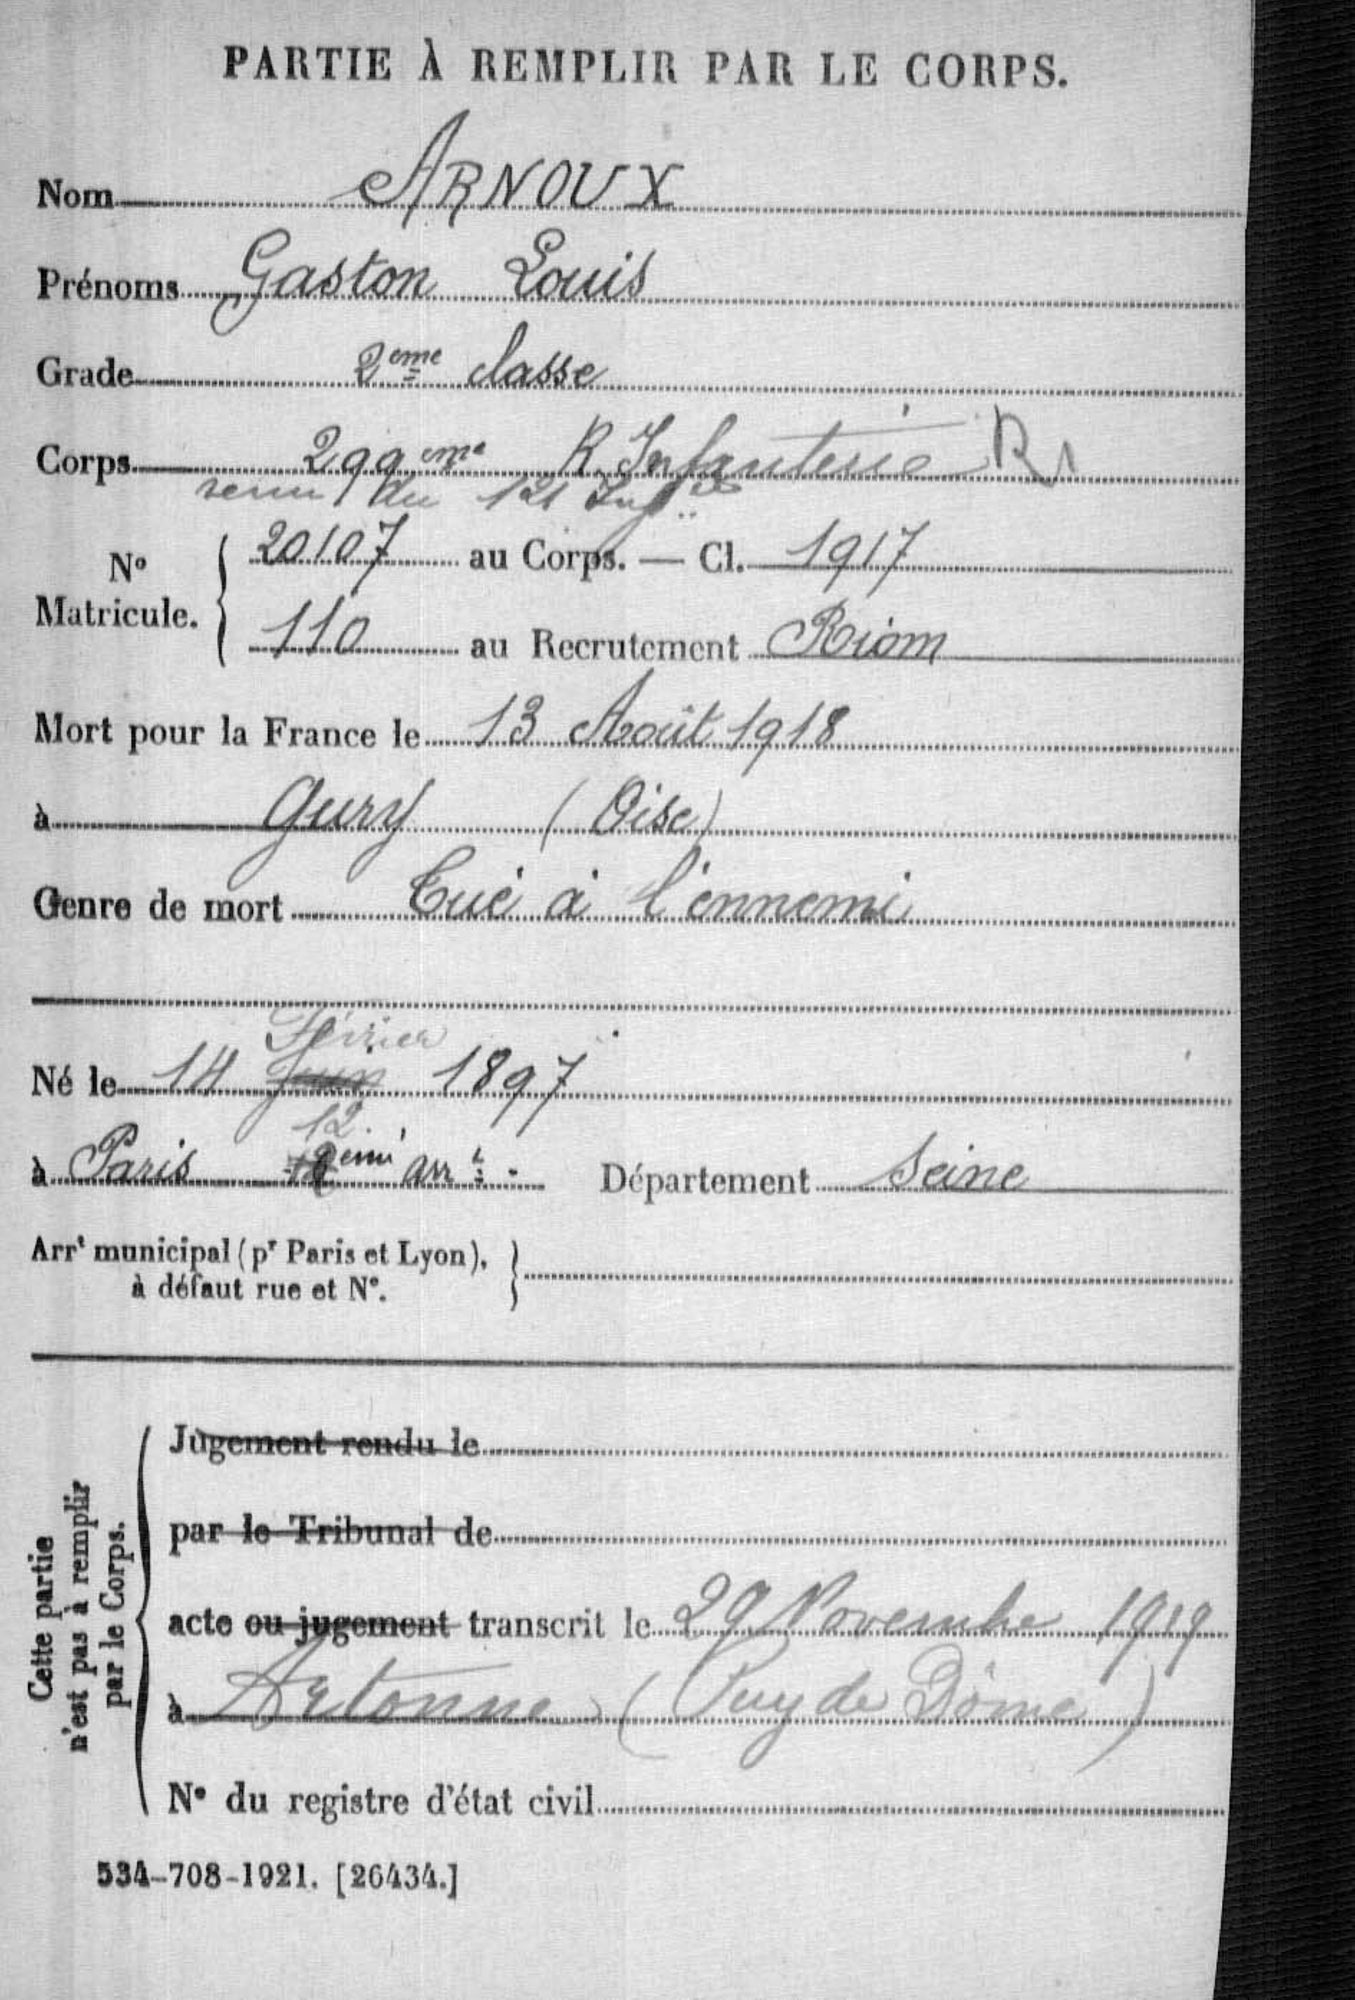 PARTIE À REMPLIR PAR LE CORPS.
Nom ARNOUX
Prénoms Gaston Louis
Grade 2eme classe
Corps 299eme R. Infanterie
venu du 121 Inf
N° Matricule. 20107 au Corps. — Cl. 1917
110 au Recrutement Riom
Mort pour la France le 13 Août 1918
à Gury (Oise)
Genre de mort Tué à l'ennemi
Février
Né le 14 Juin 1897
12.
à Paris eme arrt. Département Seine
Arrt municipal (pr Paris et Lyon),
à défaut rue et N°.
Cette partie
n'est pas à remplir
par le Corps.
Jugement rendu le
par le Tribunal de
acte ou jugement transcrit le 29 Novembre 1919
à Artonne (Puy de Dôme)
N° du registre d'état civil
534-708-1921. [26434.]